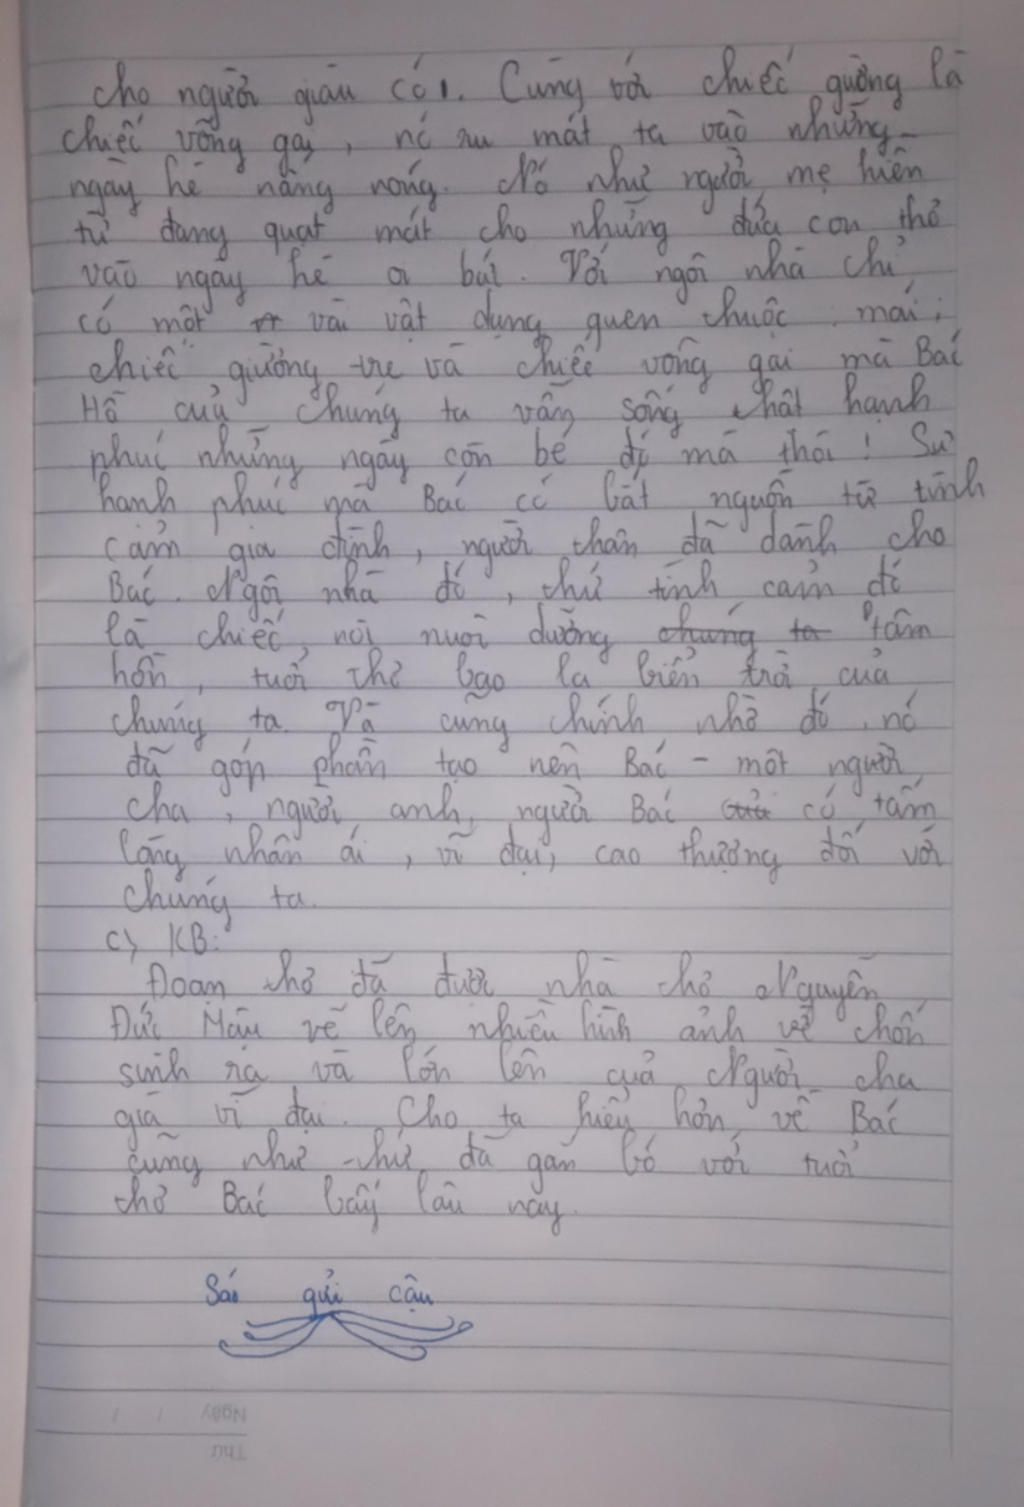 cho người giàu có,. Cùng với chiếc gường là
chiếc võng gai, nó ru mát ta vào những
ngày hè nắng nóng. Nó như người mẹ hiền
từ đang quạt mát cho những đứa con thơ
vào ngày hè oi bức. Với ngôi nhà chỉ
có một vài vật dụng quen thuộc mái,
chiếc giường tre và chiếc võng gai mà Bác
Hồ của chúng ta vẫn sống thật hạnh
phúc những ngày còn bé đó mà thôi! Sự
hạnh phúc mà Bác có bắt nguồn từ tình
cảm gia đình, người thân đã dành cho
Bác. Ngôi nhà đó, thứ tình cảm đó
là chiếc nôi nuôi dưỡng chúng ta tâm
hồn, tuổi thơ bao la biển trời của
chúng ta. Và cũng chính nhờ đó, nó
đã góp phần tạo nên Bác - một người
cha, người anh, người Bác có tấm
lòng nhân ái, vĩ đại, cao thượng đối với
chúng ta.
c) KB:
Đoạn thơ đã được nhà thơ Nguyễn
Đức Mậu vẽ lên nhiều hình ảnh về chốn
sinh ra và lớn lên của Người cha
già vĩ đại. Cho ta hiểu hơn về Bác
cũng như thứ đã gắn bó với tuổi
thơ Bác bấy lâu nay.
gửi cậu
Ngày / /
Thứ